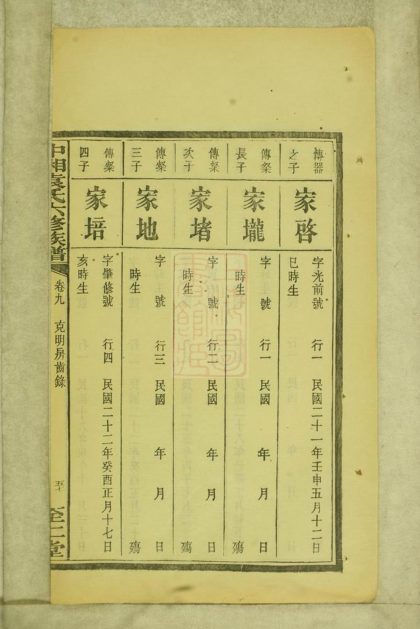 傳器
之子
家啓
字光前號　行一　民國二十一年壬申五月十二日
巳時生
傳粲
長子
家壠
字　號　行一　民國　年　月　日
時生　殤
傳粲
次子
家堵
字　號　行二　民國　年　月　日
時生　殤
傳粲
三子
家地
字　號　行三　民國　年　月　日
時生　殤
傳粲
四子
家培
字肇修號　行四　民國二十二年癸酉正月十七日
亥時生
中湘袁氏六修族譜
卷九　克明房齒錄
至仁堂